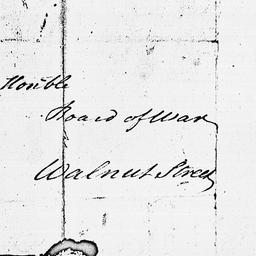 Honble
Board of War
Walnut Street